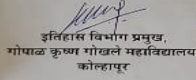 इतिहास विभाग प्रमुख,
गोपाळ कृष्ण गोखले महाविद्यालय
कोल्हापूर